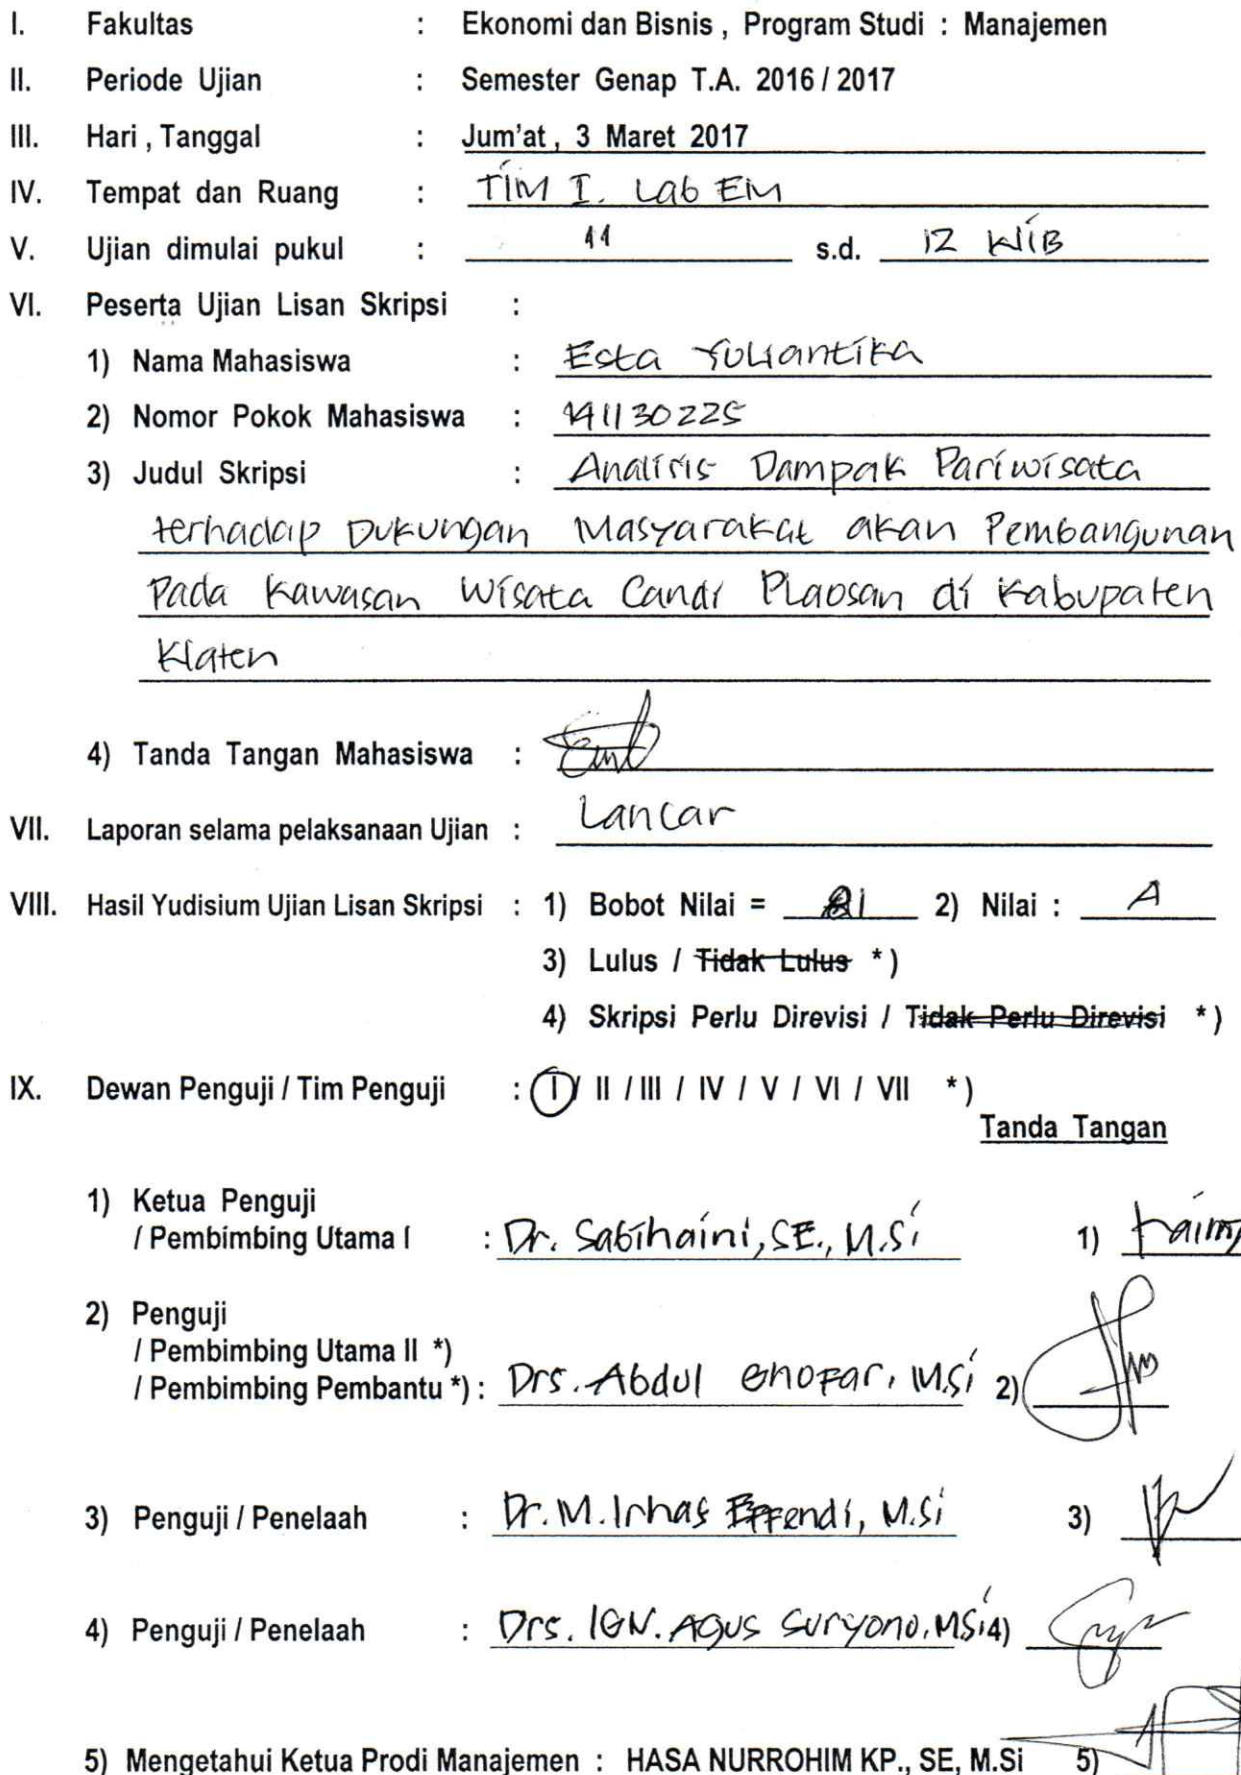 I. Fakultas : Ekonomi dan Bisnis , Program Studi : Manajemen
II. Periode Ujian : Semester Genap T.A. 2016 / 2017
III. Hari , Tanggal : Jum'at , 3 Maret 2017
IV. Tempat dan Ruang : TIM I. Lab EM
V. Ujian dimulai pukul : 11 s.d. 12 WIB
VI. Peserta Ujian Lisan Skripsi :
1) Nama Mahasiswa : Esta Yuliantika
2) Nomor Pokok Mahasiswa : 141130225
3) Judul Skripsi : Analisis Dampak Pariwisata
terhadap Dukungan Masyarakat akan Pembangunan
Pada Kawasan Wisata Candi Plaosan di Kabupaten
Klaten
4) Tanda Tangan Mahasiswa :
VII. Laporan selama pelaksanaan Ujian : Lancar
VIII. Hasil Yudisium Ujian Lisan Skripsi : 1) Bobot Nilai = 81 2) Nilai : A
3) Lulus / Tidak Lulus * )
4) Skripsi Perlu Direvisi / Tidak Perlu Direvisi * )
IX. Dewan Penguji / Tim Penguji : I / II / III / IV / V / VI / VII * )
Tanda Tangan
1) Ketua Penguji
/ Pembimbing Utama I : Dr. Sabihaini, SE., M.Si 1)
2) Penguji
/ Pembimbing Utama II *)
/ Pembimbing Pembantu *) : Drs. Abdul Ghofar, M.Si 2)
3) Penguji / Penelaah : Dr. M. Irhas Effendi, M.Si 3)
4) Penguji / Penelaah : Drs. IGN. Agus Suryono, MSi 4)
5) Mengetahui Ketua Prodi Manajemen : HASA NURROHIM KP., SE, M.Si 5)